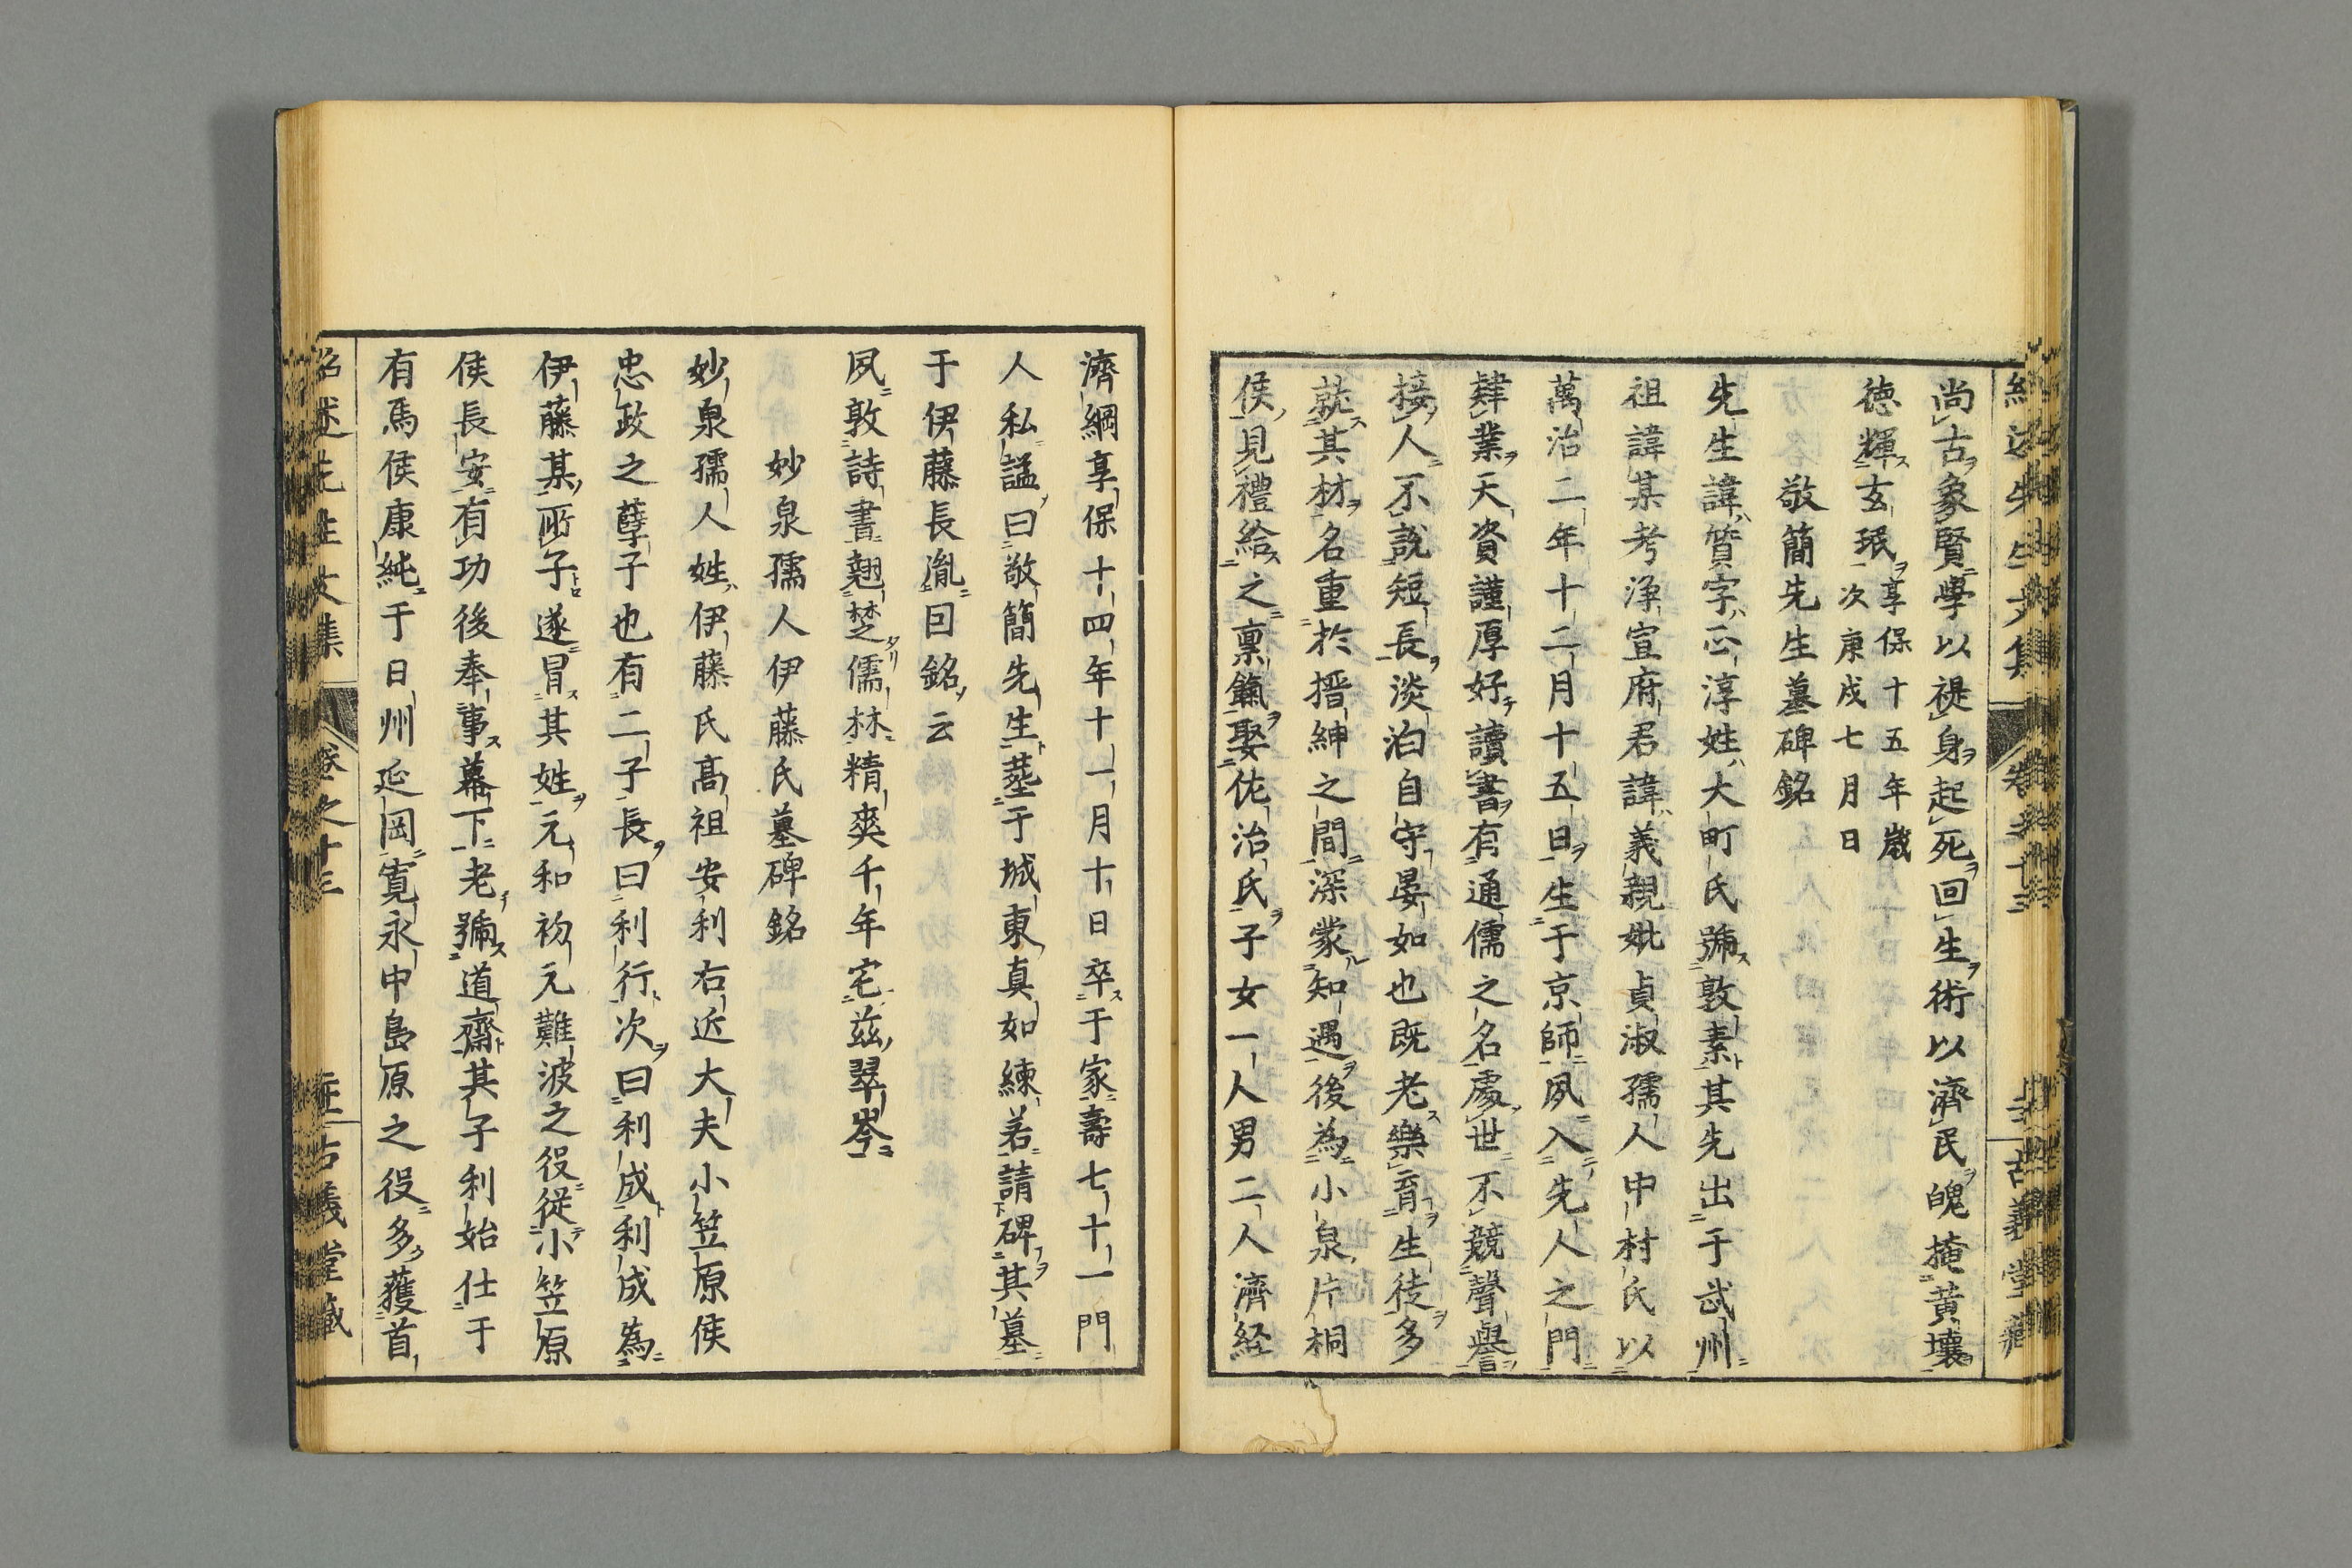 紹述先生文集 卷之十三 古義堂藏
尚古象賢學以禔身起死回生術以濟民魄掩黄壤
徳輝玄珉享保十五年歳
次庚戌七月日
敬簡先生墓碑銘
先生諱質字正淳姓大町氏號敦素其先出于武州
祖諱某考浄宣府君諱義親妣貞淑孺人中村氏以
萬治二年十二月十五日生于京師夙入先人之門
肄業天資謹厚好讀書有通儒之名處世不競聲譽
接人不説短長淡泊自守晏如也既老樂育生徒多
就其材名重於搢紳之間深蒙知遇後為小泉片桐
侯見禮給之禀餼娶佐治氏子女一人男二人濟経
濟綱享保十四年十一月十日卒于家壽七十一門
人私謚曰敬簡先生塟于城東真如練若請碑其墓
于伊藤長胤回銘云
夙敦詩書翹楚儒林精爽千年宅兹翠岑
妙泉孺人伊藤氏墓碑銘
妙泉孺人姓伊藤氏髙祖安利右近大夫小笠原侯
忠政之孽子也有二子長曰利行次曰利成利成為
伊藤某所子遂冒其姓元和初元難波之役従小笠原
侯長安有功後奉事幕下老號道齋其子利始仕于
有馬侯康純于日州延岡寛永中島原之役多獲首
紹述先生文集 卷之十三 古義堂藏